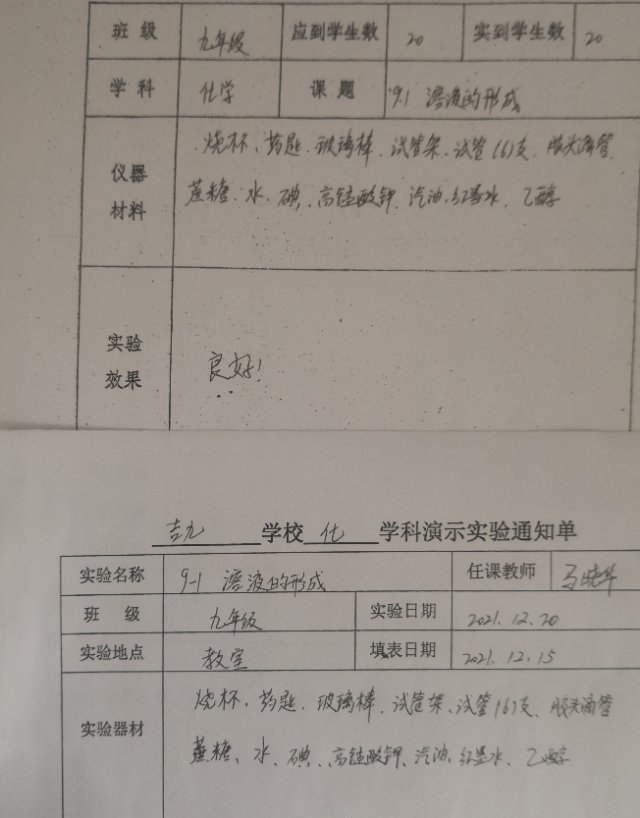 班级 九年级 应到学生数 20 实到学生数 20
学科 化学 课题 9.1 溶液的形成
仪器材料 烧杯、药匙、玻璃棒、试管架、试管(6)支、胶头滴管
蔗糖、水、碘、高锰酸钾、汽油、红墨水、乙醇
实验效果 良好!
吉九学校化学科演示实验通知单
实验名称 9-1 溶液的形成 任课教师 马晓华
班级 九年级 实验日期 2021.12.20
实验地点 教室 填表日期 2021.12.15
实验器材 烧杯、药匙、玻璃棒、试管架、试管(6)支、胶头滴管
蔗糖、水、碘、高锰酸钾、汽油、红墨水、乙醇